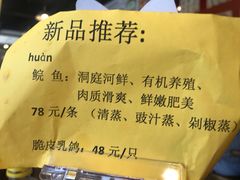 新品推荐:
huàn
鲩 鱼: 洞庭河鲜、有机养殖、
肉质滑爽、鲜嫩肥美
78 元/条 (清蒸、豉汁蒸、剁椒蒸)
脆皮乳鸽: 48 元/只